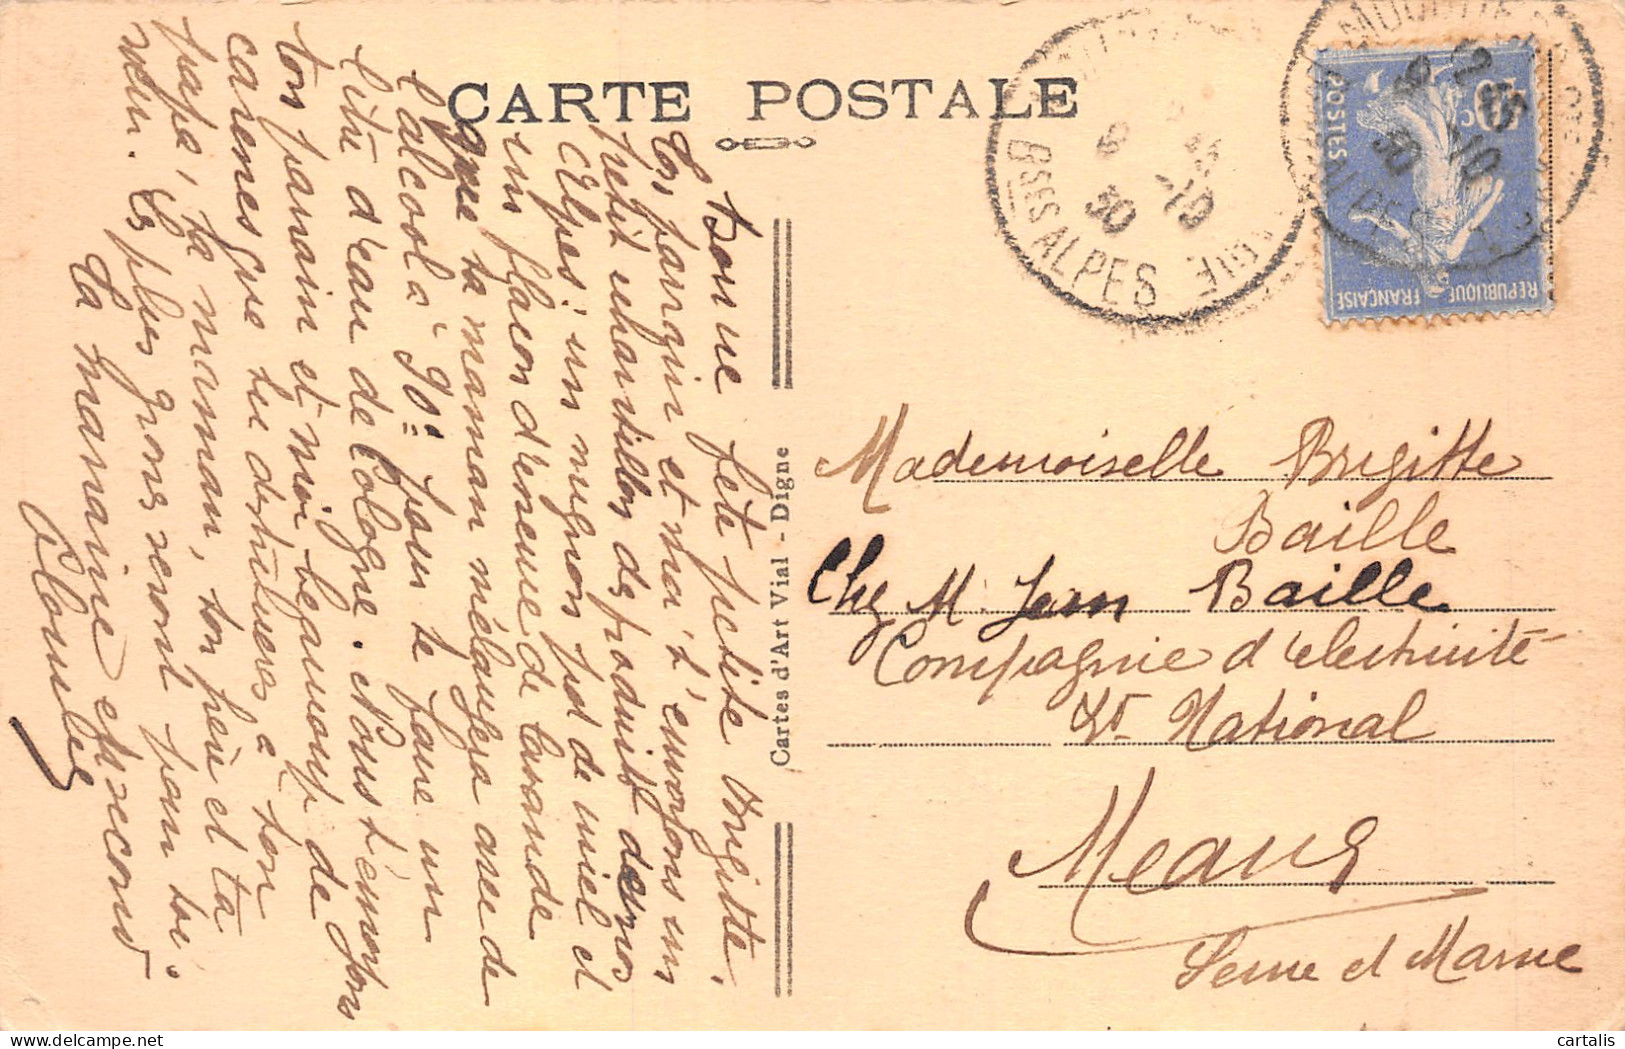 CARTE POSTALE
Bonne fête petite Brigitte.
Ton parrain et moi t'envoyons un
petit échantillon de produits de nos
Alpes: un mignon pot de miel et
un flacon d'essence de lavande
que ta maman mélangera avec de
l'alcool à 90° pour te faire un
litre d'eau de Cologne. Nous t'envoyons
ton parrain et moi beaucoup de
caresses que tu distribueras à ton
papa, ta maman, ton frère et ta
sœur. Les plus gros seront pour toi.
Ta marraine et second
Cartes d'Art Vial - Digne
Mademoiselle Brigitte
Baille
Chez M. Jean Baille
Compagnie d'électricité
Lt National
Meaux
Seine et Marne
Bses ALPES
8
-10
30
REPUBLIQUE FRANÇAISE
POSTES
© cartalis
delcampe.net